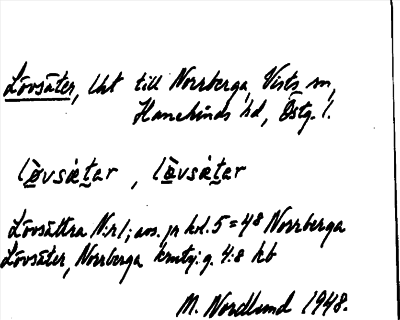 Lövsäter, lht till Norrberga, Vists sn,
Hanekinds hd, Östg. l.
lø̀vsætar, lø̀vsætar
Lövsättra N:r 1; avs. jr hol. 5 = 48 Norrberga
Lövsäter, Norrberga krntg: g. 4:8 kb
M. Nordlund 1948.